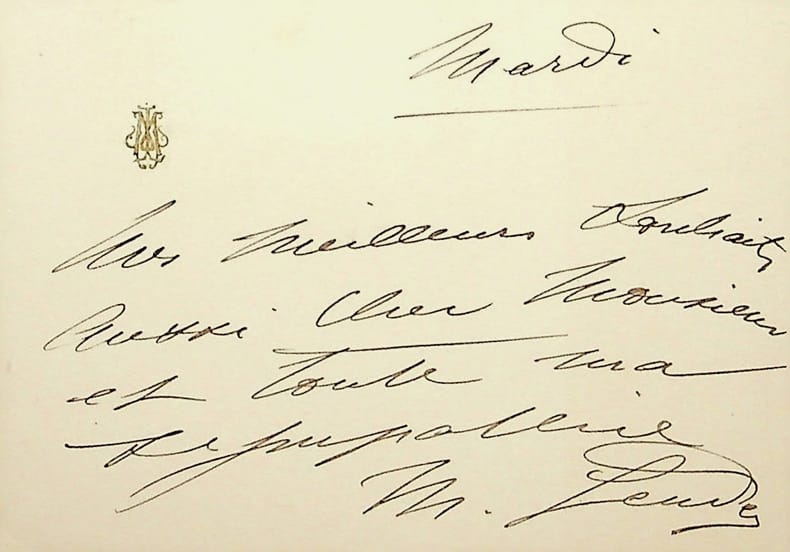 Mardi
Mes meilleurs souhaits
aussi cher Monsieur
et toute ma
sympathie
M. Lender